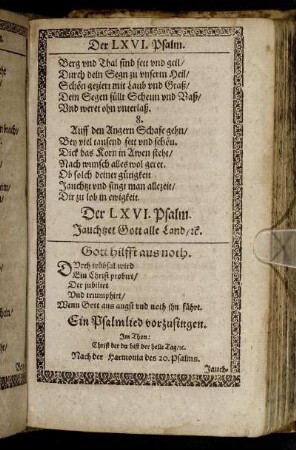 Der LXVI. Psalm.
Berg vnd Thal sind fett vnd geil/
Durch dein Segn zu vnserm Heil/
Schön geziert mit Laub vnd Graß/
Dein Segen füllt Scheun vnd Vaß/
Vnd weret ohn vnterlaß.
8.
Auff den Angern Schafe gehn/
Bey viel tausend fett vnd schön.
Dick das Korn in Awen steht/
Nach wunsch alles wol geret.
Ob solch deiner gütigkeit
Jauchtzt vnd singt man allezeit/
Dir zu lob in ewigkeit.
Der LXVI. Psalm.
Jauchtzet Gott alle Land/ꝛc.
Gott hilfft aus noth.
DVrch trübsal wird
Ein Christ probirt/
Der jubilert
Vnd triumphirt/
Wenn Gott aus angst vnd noth jhn führt.
Ein Psalmlied vorzusingen.
Im Thon:
Christ der du bist der helle Tag/ꝛc.
Nach der Harmonia des 20. Psalms.
Jauch-